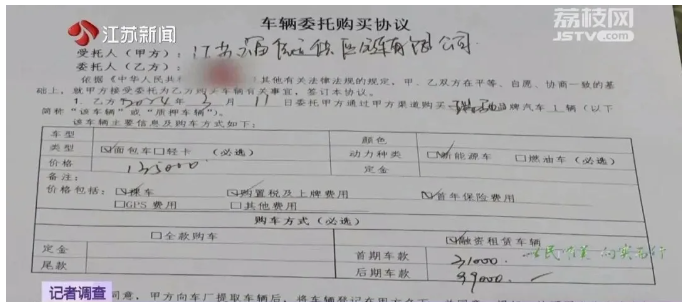 江苏新闻
荔枝网
JSTV.com
车辆委托购买协议
受托人（甲方）：江苏 有限公司
委托人（乙方）：
依据《中华人民共 其他有关法律法规的规定，甲、乙双方在平等、自愿、协商一致的基
础上，就甲方接受委托为乙方购买车辆有关事宜，签订本协议。
1. 乙方2024年3月11日委托甲方通过甲方渠道购买 品牌汽车1辆（以下
简称“该车辆”或“质押车辆”）。
该车辆主要信息及购车方式如下：
车型 颜色
类型 ☑面包车□轻卡 （必选） 动力种类 ☑新能源车 □燃油车（必选）
价格 135000 定金
备注：
价格包括： ☑裸车 ☑购置税及上牌费用 ☑首年保险费用
□GPS费用 □其他费用
购车方式（必选）
□全款购车 ☑融资租赁车辆
定金 首期车款 31000.
尾款 后期车款 99000.
记者调查
同意，甲方向车厂提取车辆后，将车辆登记在甲方名下